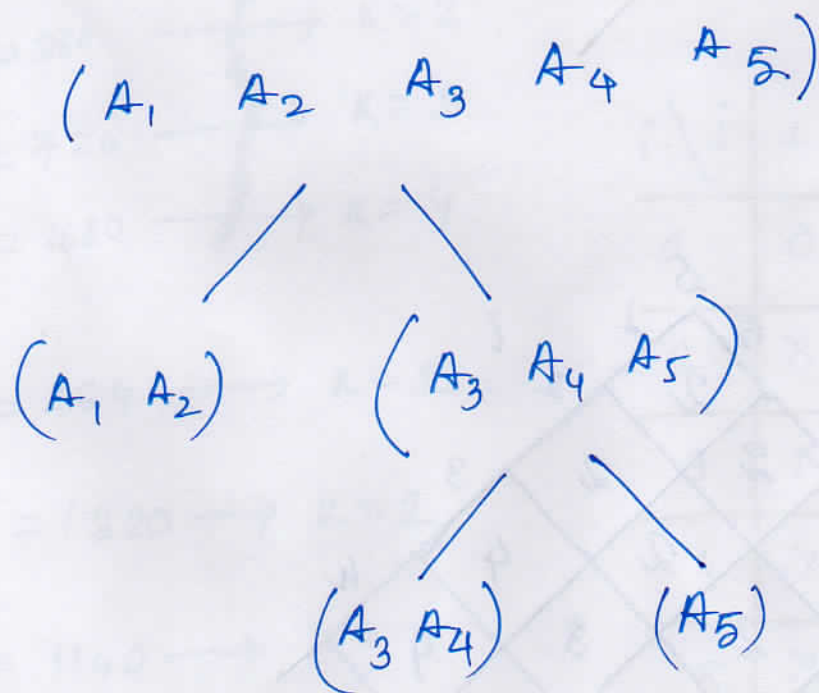 (A₁ A₂ A₃ A₄ A₅)
(A₁ A₂) (A₃ A₄ A₅)
(A₃ A₄) (A₅)